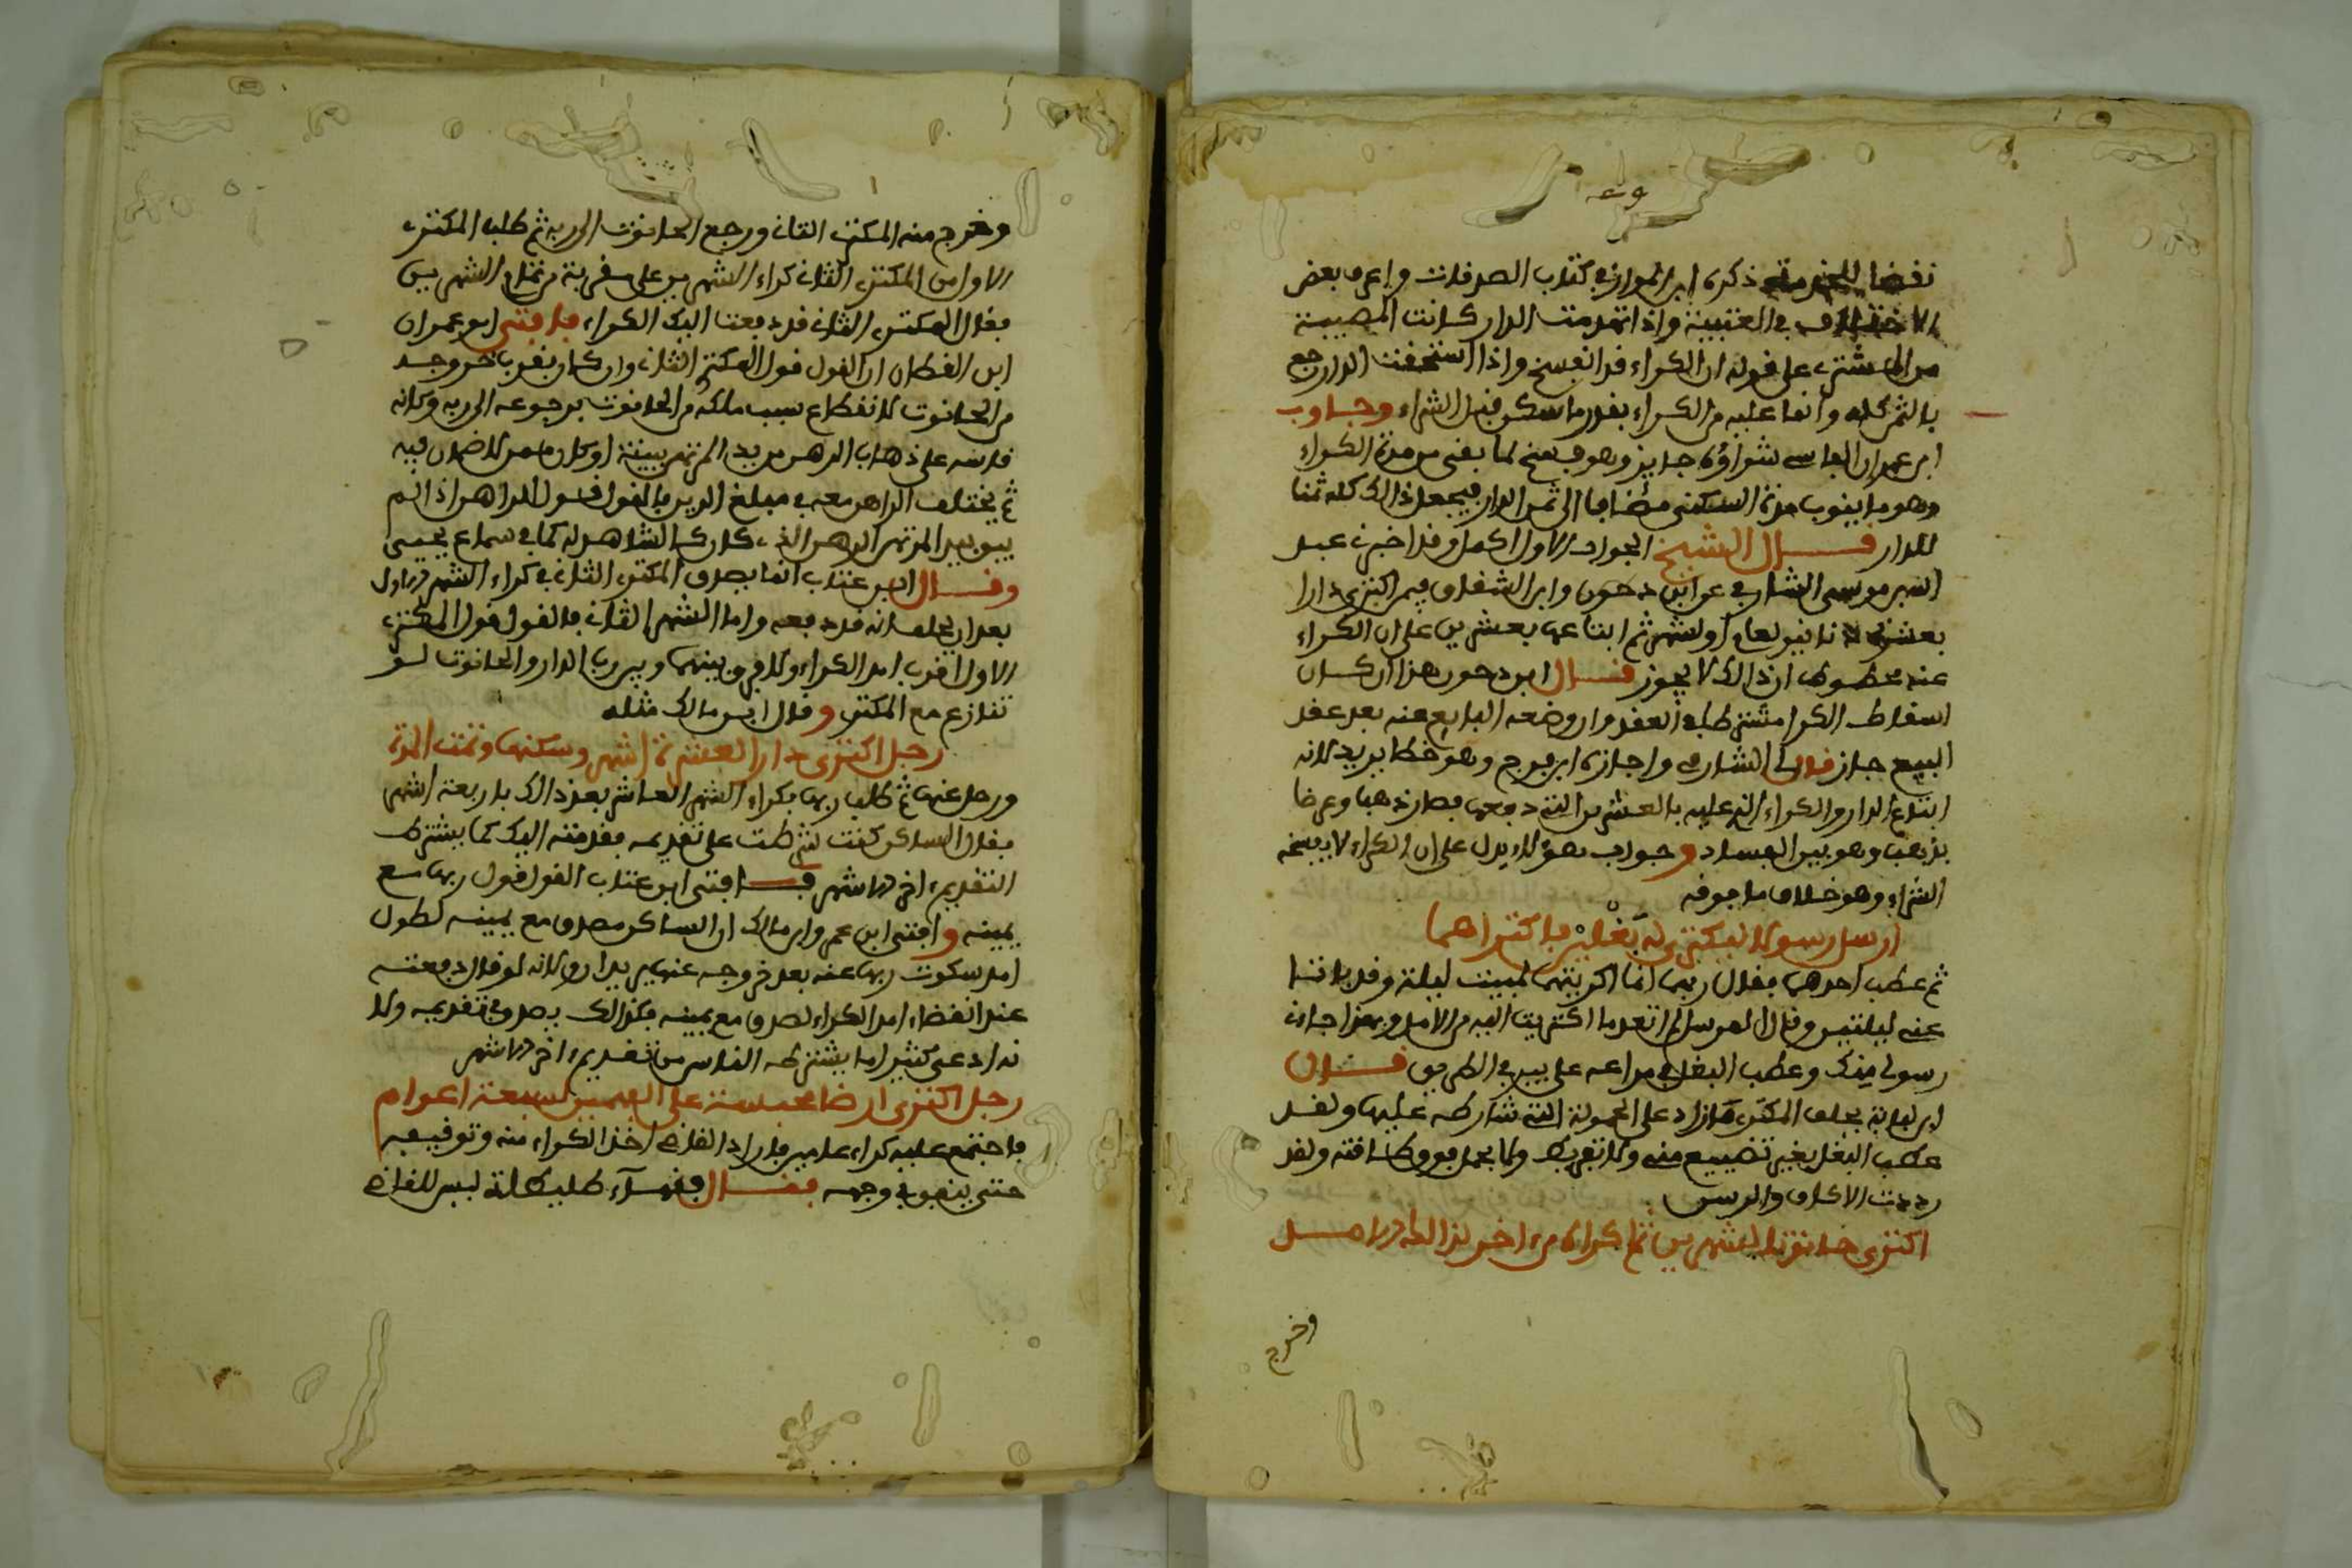 ذكره ابن المواز في كتاب الصرفات واعرف بعض
الاختلاف في العتبية واذا تهدمت الدار كانت المصيبة
من المشتري على قوله ان الكراء قد انفسخ واذا استحقت الدار رجع
بالثمن كله وانما عليه من الكراء بقدر ما سكن قبل الشراء وجاوب
ابو عمران الفاسي شراؤه جايز وهو فسخ لما بقي من مدة الكراء
وهو ما ينوب مدة السكنى مضافا الى ثمن الدار فيجعل ذالك كله ثمنا
للدار قال الشيخ الجواب الاول اكمل وقد اخبرني عبد
موسى الشارفي عن ابن دحون وابن الشقاق فيمن اكترى دارا
بعشرة دنانير لعام او لشهر ثم ابتاعها بعشرين على ان الكراء
عنه محطوط ان ذالك لا يجوز قال ابن دحون هذا ان كان
اسقاط الكرا مشترطا في العقد وان وضعه البايع عنه بعد عقد
البيع جاز قال لي الشارفي واجازه ابن فرج وهو خطا يريد لانه
ابتاع الدار والكراء الذي عليه بالعشرين التي دفعها فصار ذهبا وعرضا
بذهب وهو بين الفساد وجواب هؤلاء يدل على ان الكراء لا يفسخه
الشراء وهو خلاف ما جوفه
ارسل رسولا ليكتري له بغلين فاكتراهما
ثم عطب احدهما فقال ربهما انما اكريتهما لمبيت ليلة وقد باتتا
عنه ليلتين وقال المرسل لم اتعد ما اكتريت اليه من الامد وبهذا جاءني
رسولي منك وعطب البغل في مراعه على بير في الطريق قال
ابن لبابة يحلف المكتري ما زاد على الحمولة التي شارطه عليها ولقد
عطب البغل بغير تضييع منه ولا تفريط ولما يحمل فوق طاقته ولقد
رددت الاكاف والرسن
اكترى حانوتا لشهرين ثم اكراه من اخر لذالك الامد
وخرج
وخرج منه المكتري الثاني ورجع الحانوت الى ربه ثم طلب المكتري
الاول من المكتري الثاني كراء الشهرين على مقربة من تمام الشهرين
فقال المكتري الثاني قد دفعت اليك الكراء فافتى ابو عمران
ابن القطان ان القول قول المكتري الثاني وان كان بقرب خروجه
من الحانوت لانقطاع سبب ملكه من الحانوت برجوعه الى ربه وكانه
قاسه على ذهاب الرهن من يد المرتهن ببينة او كان ممن لا ضمان فيه
ثم يختلف الراهن معه في مبلغ الدين فالقول قول الراهن اذا لم
يبق بيد المرتهن الرهن الذي كان كالشاهد له كما في سماع يحيى
وقال ابن عتاب انما يصدق المكتري الثاني في كراء الشهر الاول
بعد ان يحلف انه قد دفعه واما الشهر الثاني فالقول قول المكتري
الاول لقرب امد الكراء ولا فرق بينهما وبين رب الدار والحانوت لو
تنازع مع المكتري وقال ابن مالك مثله
رجل اكترى دارا لعشرة اشهر وسكنها وتمت المدة
ورحل عنها ثم طلب ربها بكراء الشهر العاشر بعد ذالك باربعة اشهر
فقال الساكن كنت شرطت على تقديمه فقدمته اليك كما يشترط
التقديم اخر الاشهر فافتى ابن عتاب القول قول ربها مع
يمينه وافتى ابن عمر وابن مالك ان الساكن مصدق مع يمينه لطول
امد سكوت ربها عنه بعد خروجه عنها يريدان ولانه لو قال دفعته
عند انقضاء امد الكراء لصدق مع يمينه فكذالك يصدق في تقديمه ولا
نه ادعى كثيرا ما يشترطه الناس من تقديم اخر الاشهر
رجل اكترى ارضا محبسة على المسجد لسبعة اعوام
فاجتمع عليه كراء عامين فاراد القاضي اخذ الكراء منه وتوقيفه
حتى ينفق في وجهه فقال فقهاء طليطلة ليس للقاضي